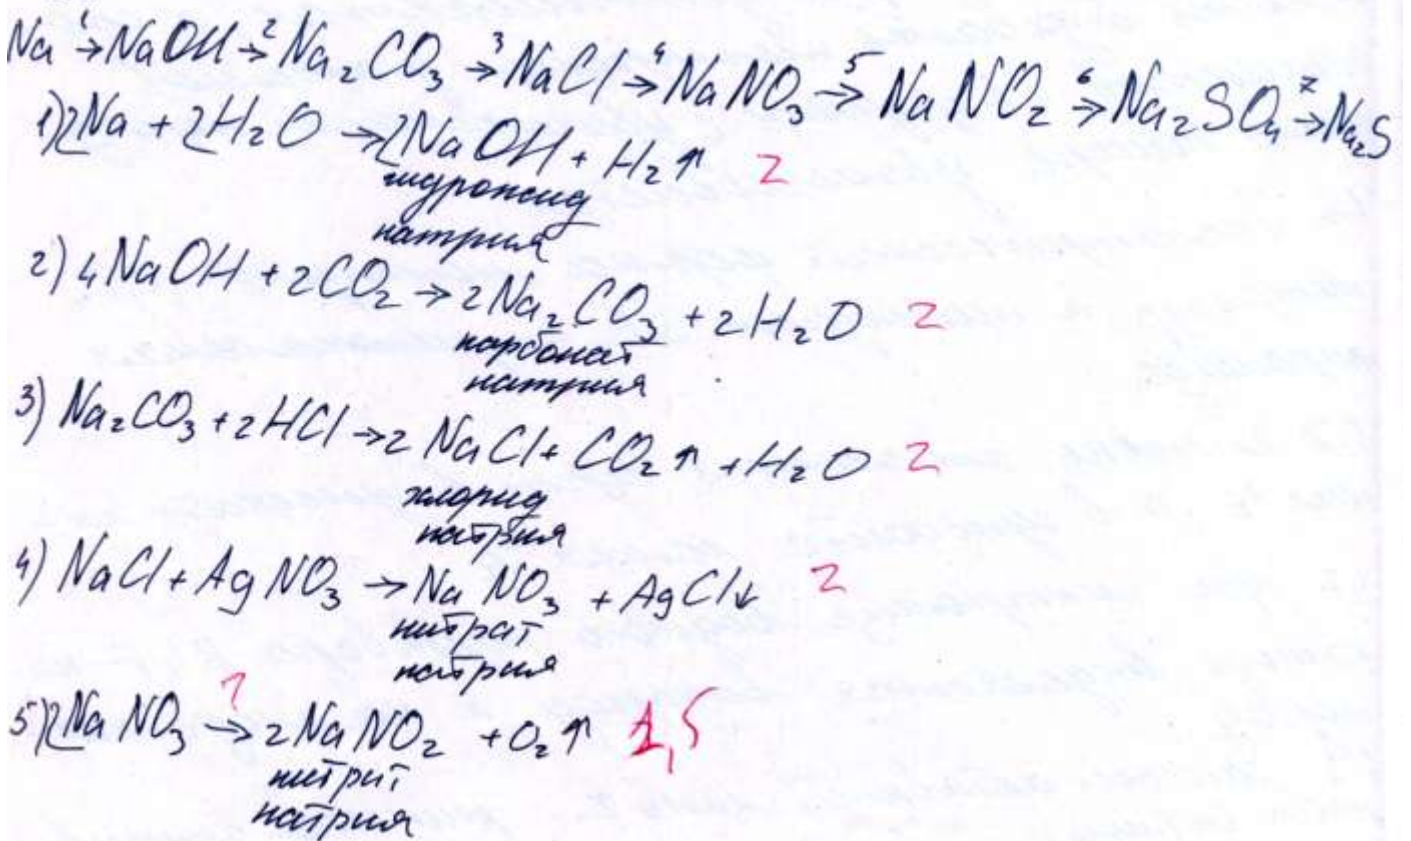 Na ¹→ NaOH →² Na₂CO₃ ³→ NaCl ⁴→ NaNO₃ ⁵→ NaNO₂ ⁶→ Na₂SO₄ ⁷→ Na₂S
1) 2Na + 2H₂O → 2NaOH + H₂↑ 2
гидроксид
натрия
2) 4NaOH + 2CO₂ → 2Na₂CO₃ + 2H₂O 2
карбонат
натрия
3) Na₂CO₃ + 2HCl → 2NaCl + CO₂↑ + H₂O 2
хлорид
натрия
4) NaCl + AgNO₃ → NaNO₃ + AgCl↓ 2
нитрат
натрия
?
5) 2NaNO₃ → 2NaNO₂ + O₂↑ 1,5
нитрит
натрия